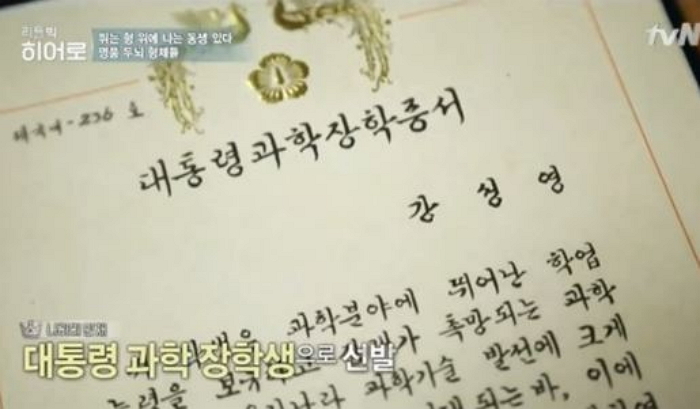 리틀빅
히어로
뛰는 형 위에 나는 동생 있다
명품 두뇌 형제들
tvN
236 호
대통령과학장학증서
강 성 영
과학분야에 뛰어난 학업
촉망되는 과학
과학기술 발전에 크게
되는바, 이에
대통령 과학 장학생으로 선발